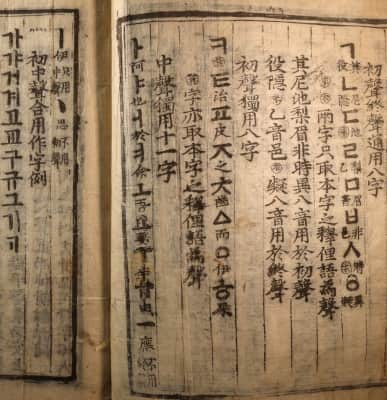 初聲終聲通用八字
ㄱ其役ㄴ尼隱ㄷ池末ㄹ梨乙ㅁ眉音ㅂ非邑ㅅ時衣ㆁ異凝
末衣兩字只取本字之釋俚語爲聲
其尼池梨眉非時異八音用於初聲
役隱末乙音邑衣凝八音用於終聲
初聲獨用八字
ㅋ箕ㅌ治ㅍ皮ㅈ之ㅊ齒ㅿ而ㅇ伊ㅎ屎
箕字亦取本字之釋俚語爲聲
中聲獨用十一字
ㅏ阿ㅑ也ㅓ於ㅕ余ㅗ吾ㅛ要ㅜ牛ㅠ由ㅡ應不用
ㅣ伊只用中聲ㆍ思不用初聲
初中聲合用作字例
가갸거겨고교구규그기ᄀᆞ